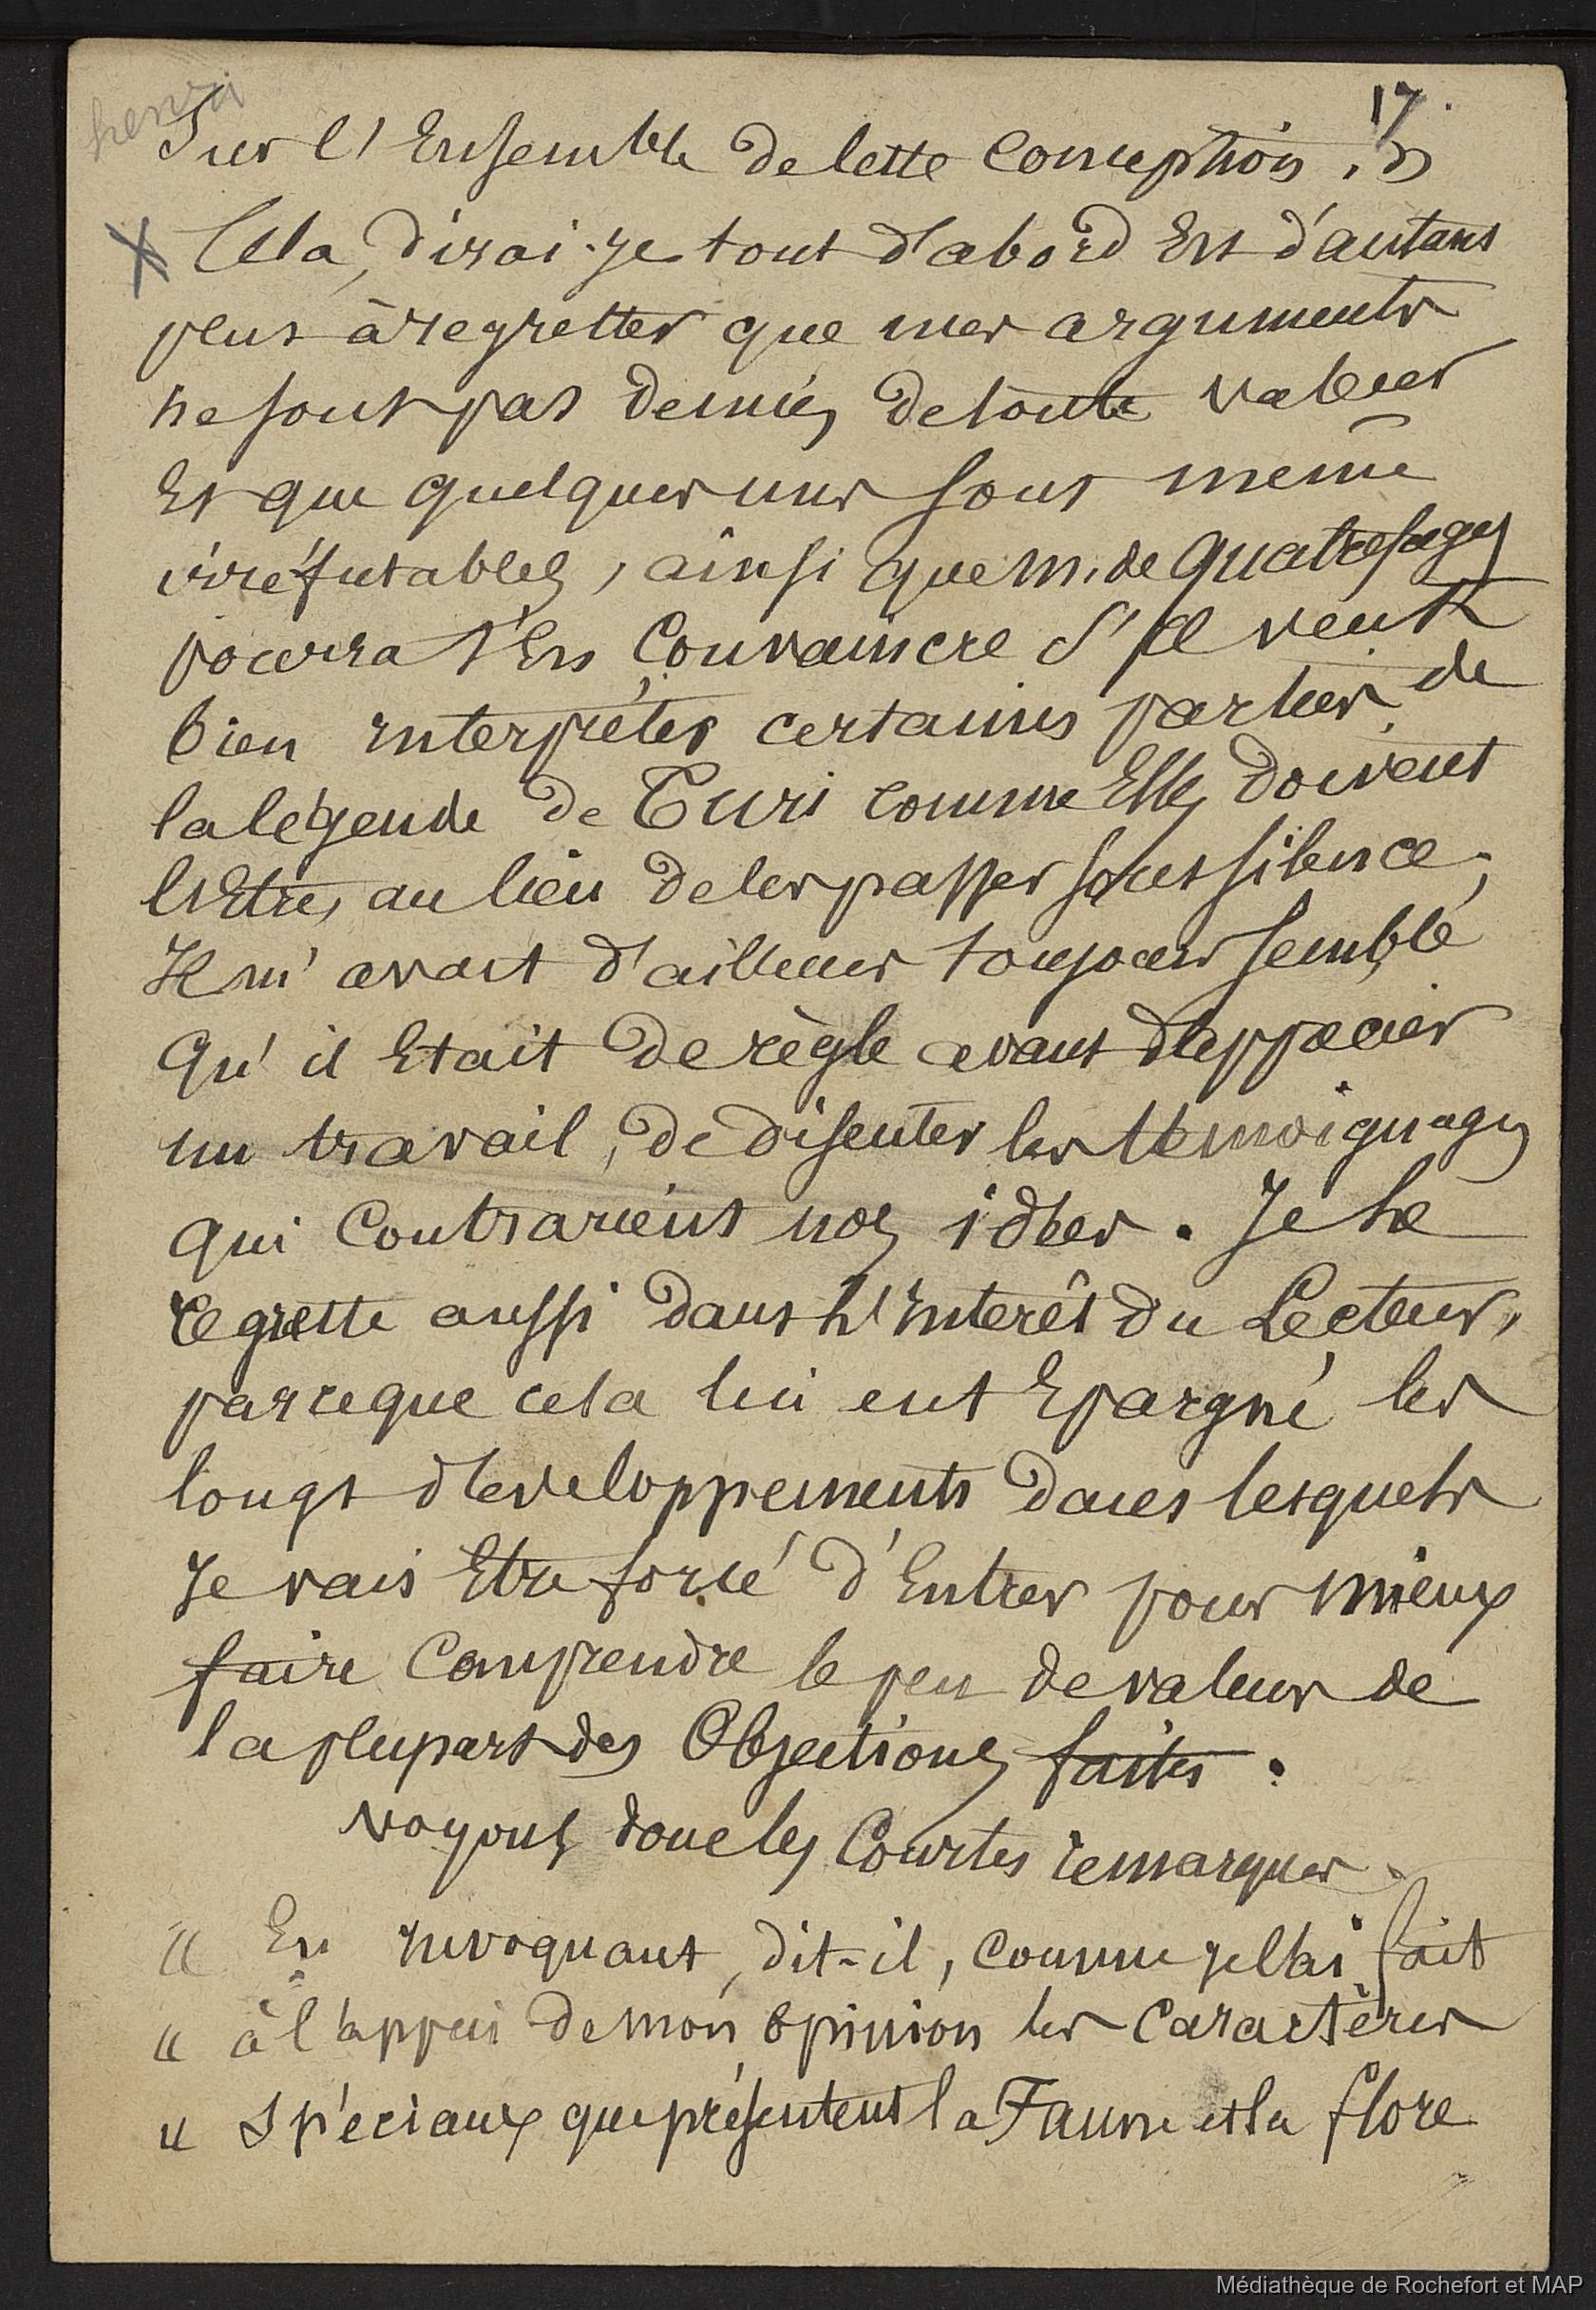 17.
henri
Sur l'Ensemble de cette Conception. »
X Cela, dirai-je tout d'abord Est d'autant
plus à regretter que mes arguments
ne sont pas denués de toute valeur
Et que quelques uns sont même
irréfutables, ainsi que M. de Quatrefages
pourra s'En Convaincre s'Il veut
bien interpréter certaines parties de
la légende de Turi comme Elles doivent
l'Etre, au lieu de les passer sous silence;
Il m'avait d'ailleurs toujours semblé
Qu'il Etait de règle avant d'apprécier
un travail, de discuter les témoignages
qui Contrarient nos idées. Je le
regrette aussi dans l'Interêt du Lecteur,
parceque cela lui eut Epargné les
longs développements dans lesquels
Je vais Etre forcé d'Entrer pour mieux
faire Comprendre le peu de valeur de
la plupart des Objections faites.
voyons donc les Courtes remarques.
« En invoquant, dit-il, comme je l'ai fait
« à l'appui de mon opinion les Caractères
« Spéciaux que présentent la Faune et la flore
Médiathèque de Rochefort et MAP